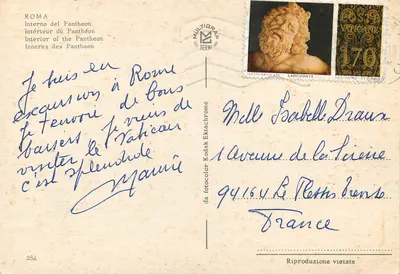 ROMA
Interno del Pantheon
Intérieur du Panthéon
Interior of the Pantheon
Inneres des Pantheon
MULTIGRAF
TERNI
LAOCOONTE
170
Je suis en
excursion à Rome
Je t'envoie de bons
baisers Je viens de
visiter le Vatican
c'est splendide
Mamie
da fotocolor Kodak Ektachrome
Melle Isabelle Draux
1 Avenue de la Sirène
94164 Le Plessis Trevise
France
264
Riproduzione vietata